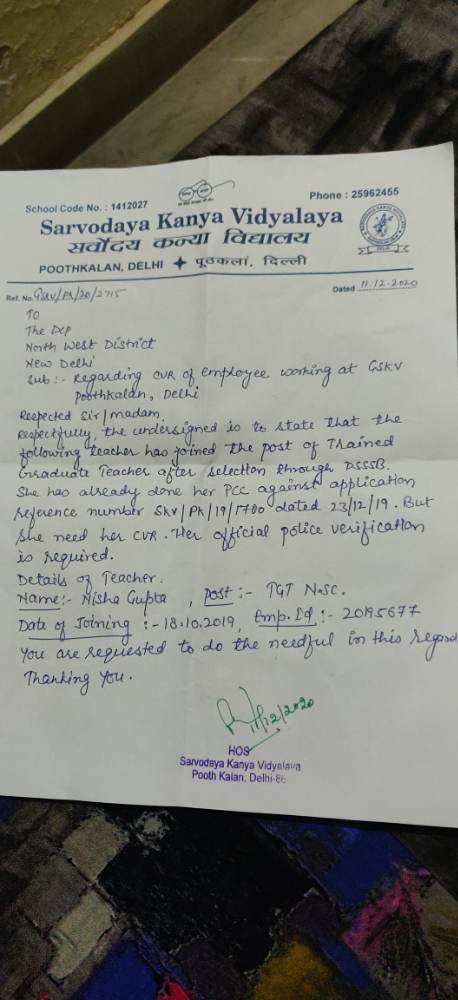 School Code No. : 1412027
Phone : 25962455
Sarvodaya Kanya Vidyalaya
सर्वोदय कन्या विद्यालय
POOTHKALAN, DELHI पूठकलां, दिल्ली
Ref. No. GSKV/PK/20/2715
Dated 11-12-2020
To
The DCP
North West District
New Delhi
Sub :- Regarding CVR of employee working at GSKV
Poothkalan, Delhi
Respected Sir/Madam,
Respectfully, the undersigned is to state that the
following teacher has joined the post of Trained
Graduate Teacher after selection through DSSSB.
She has already done her PCC against application
reference number SKV/PK/19/1780 dated 23/12/19. But
she need her CVR. Her official police verification
is required.
Details of Teacher.
Name:- Nisha Gupta , Post :- TGT N.Sc.
Date of Joining :- 18.10.2019, Emp. Id :- 20195677
You are requested to do the needful in this regard
Thanking You.
11/12/2020
HOS
Sarvodaya Kanya Vidyalaya
Pooth Kalan, Delhi-86